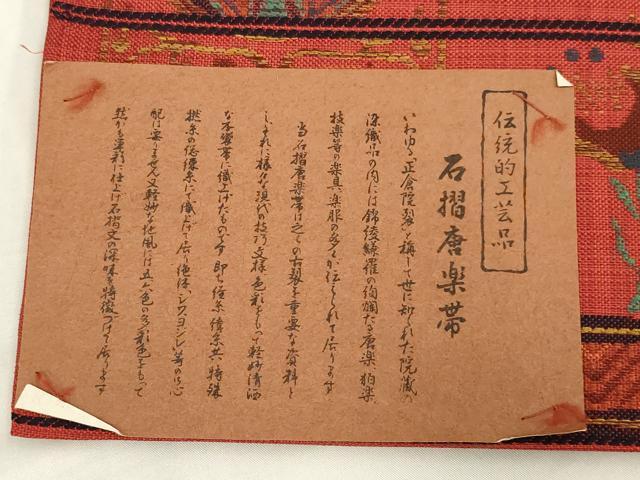 伝統的工芸品
石摺唐楽帯
いわゆる「正倉院裂」と称して世に知られた院蔵の
染織品の内には錦綾繍羅の絢爛たる唐楽 狛楽
技楽等の楽具、楽服の多くが伝えられて居ります
当石摺唐楽帯は之の古裂を重要な資料と
し、それに様々な現代の技巧、文様、色彩をもって軽妙清洒
な本袋帯に織上げたものです 即ち経糸 緯糸共 特殊
撚糸の係練糸にて織上げて居り絶体、シワヨジレ等の心
配は要りません 又軽妙な地風には五六色の多彩色をもって
然かも重彩に仕上げ石摺文の深味を特徴づけて居ります